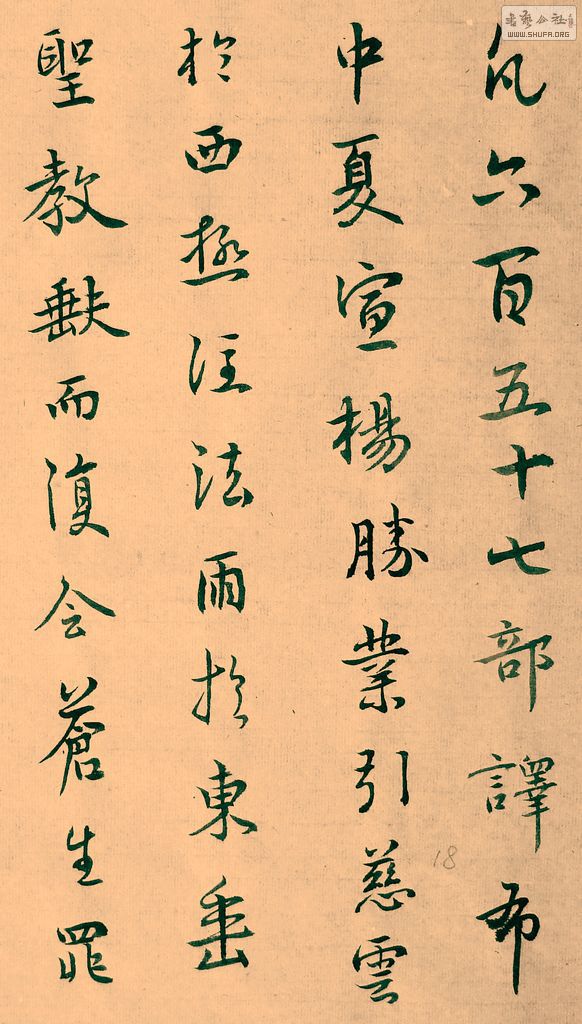 凡六百五十七部譯布
中夏宣楊勝業引慈雲
於西極注法雨於東垂
聖教缺而復全蒼生罪
18
WWW.SHUFA.ORG